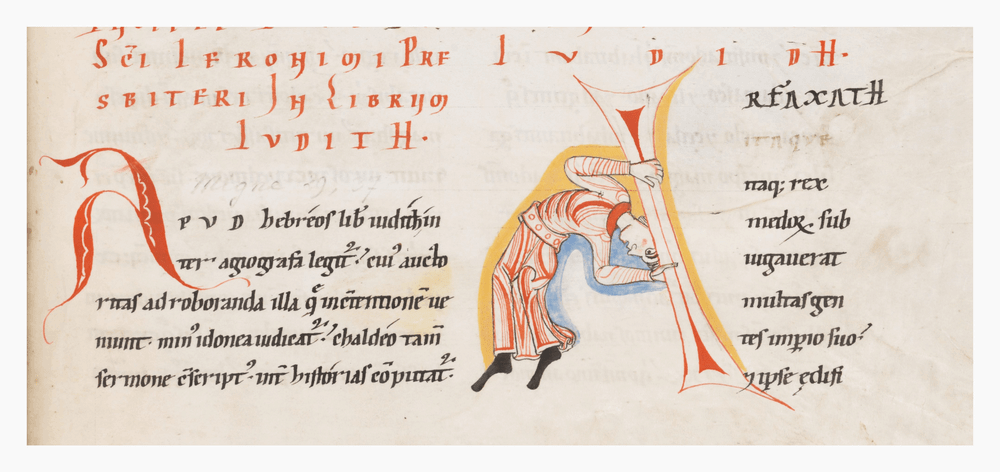 Sc̄i Ieronimi Pre
sbiteri in Librum
Iudith.
Apud hebreos lib̄ iudith in
ter agiografa legit᷑. cui᷒ aucto
ritas ad roboranda illa
ue
niunt. min᷒ idonea iudicat᷑. chaldeo tam̄
sermone
historias
I V D I DH.
ARFAXATH
ITAQUE
itaq; rex
medoꝝ sub
iugauerat
multas gen
tes imꝑio suo.
⁊ ipse edifi